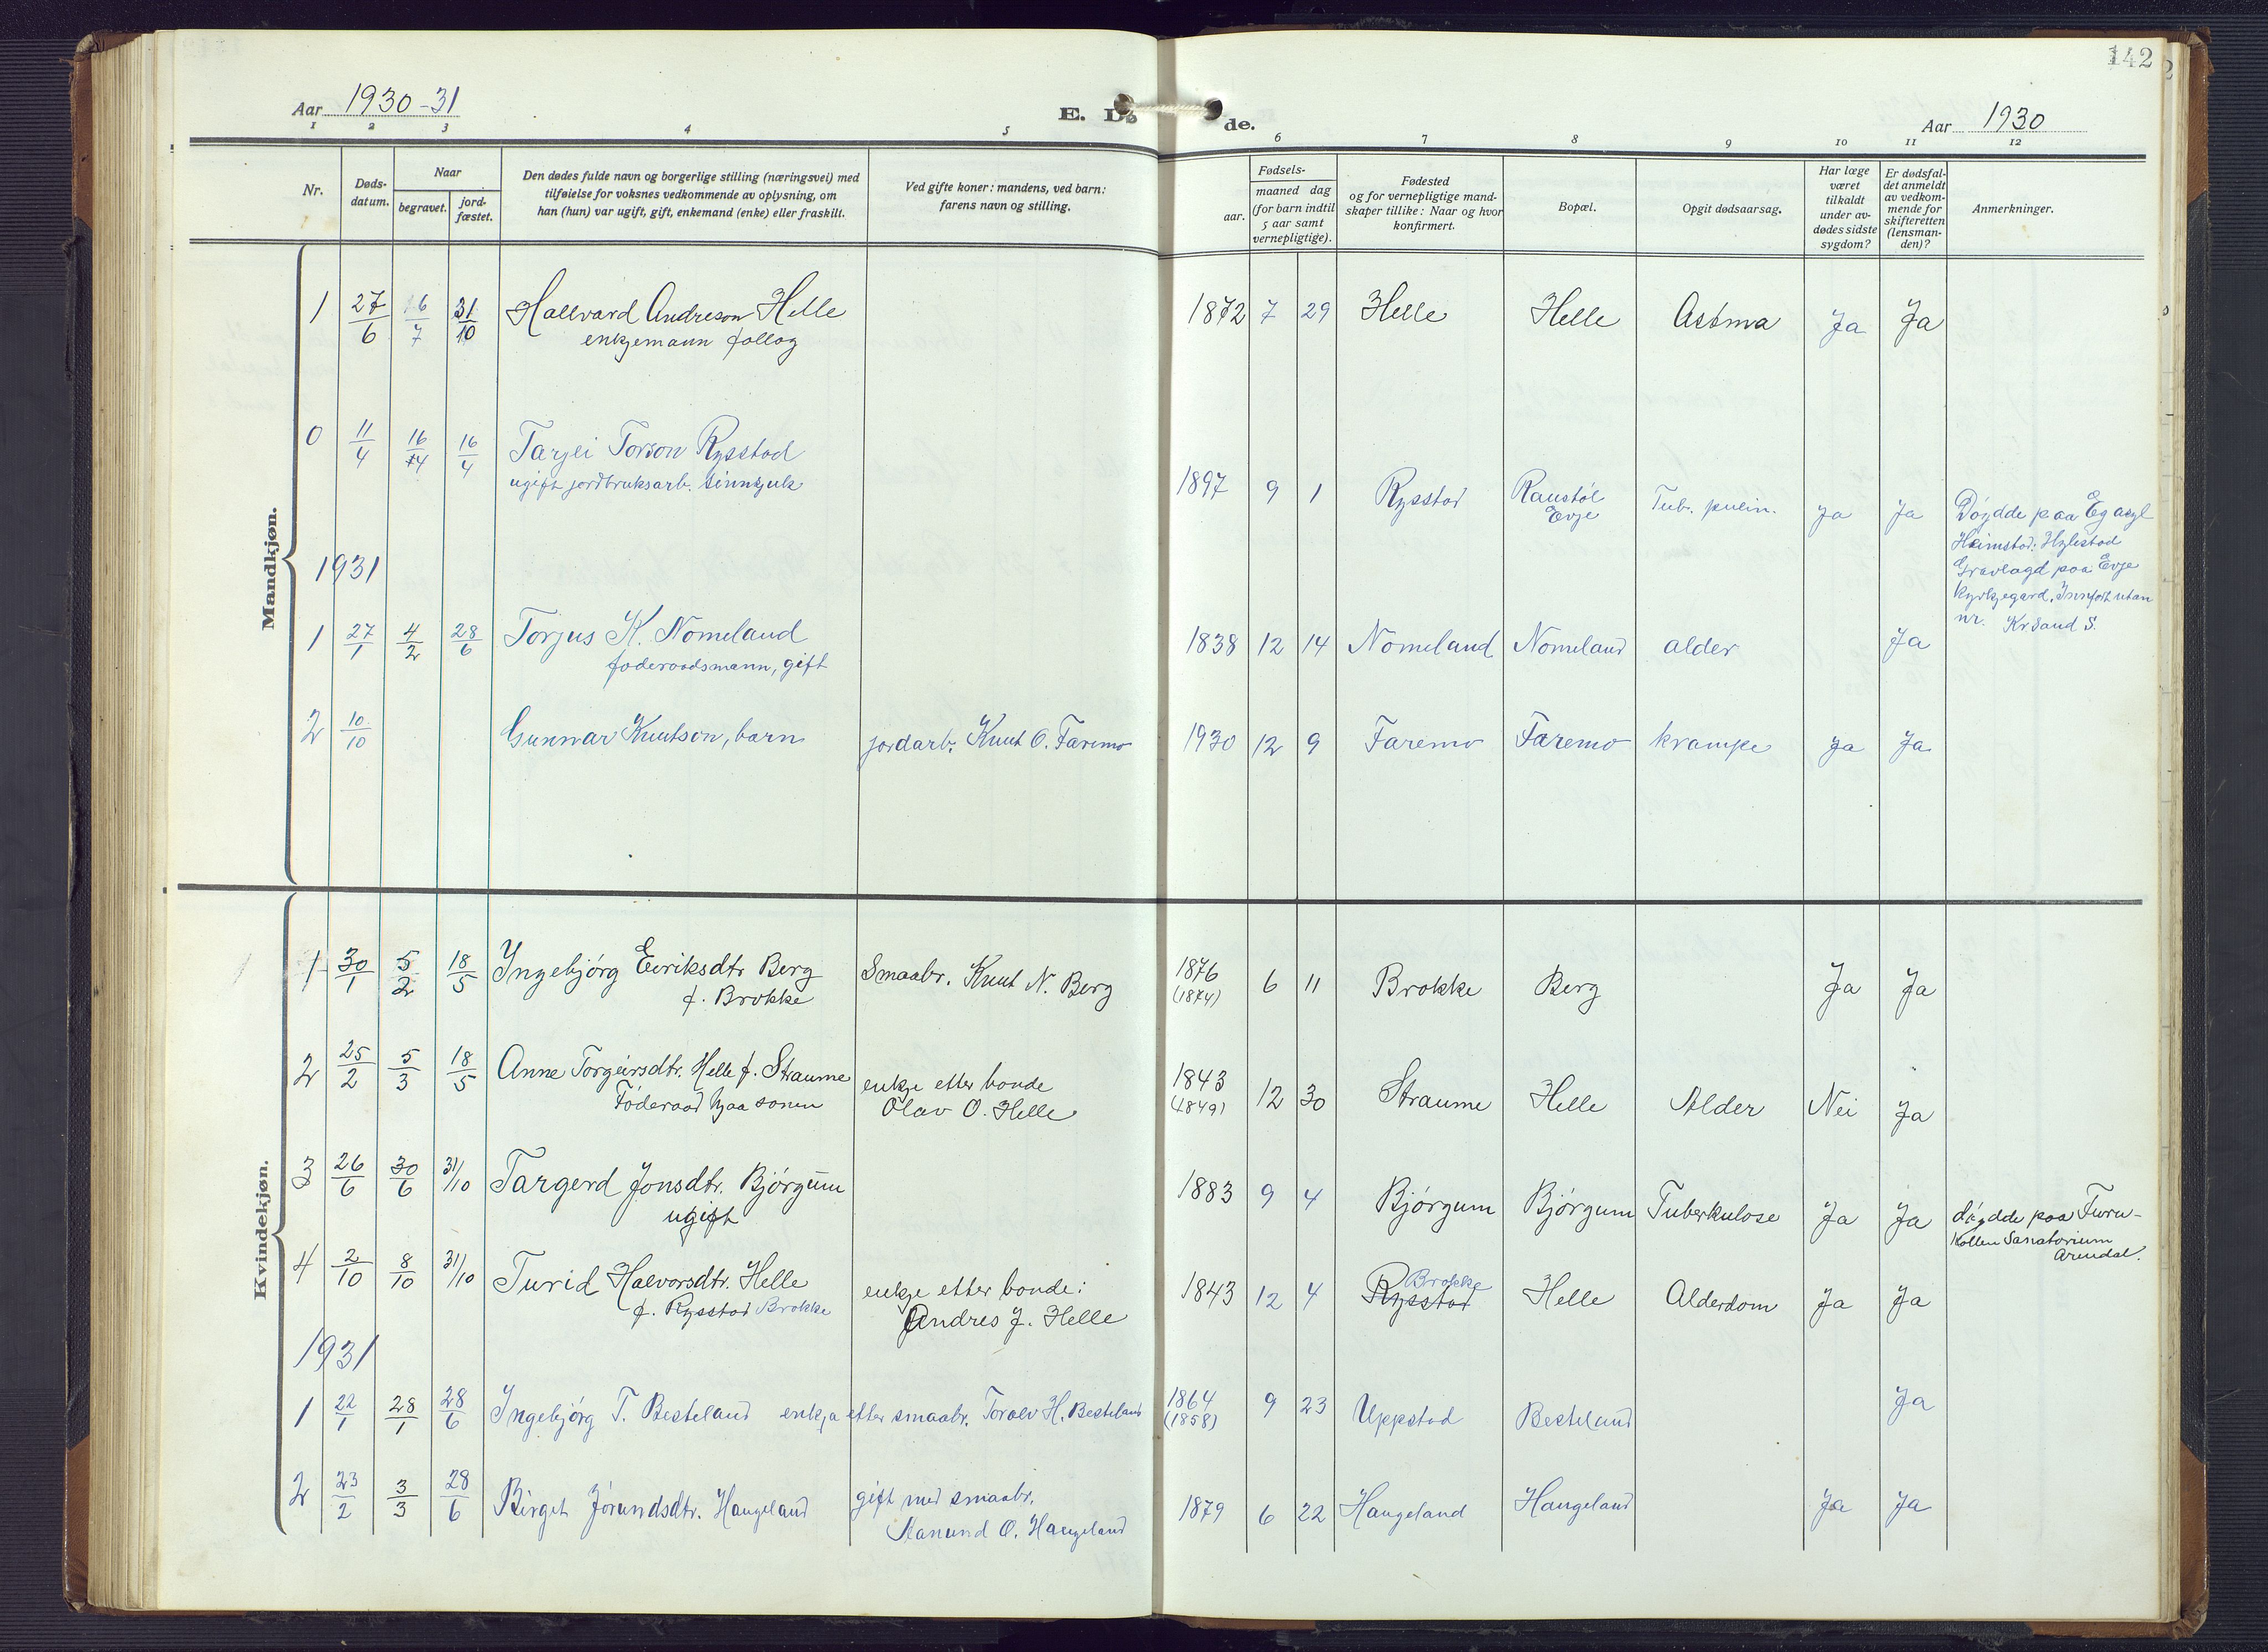 142
Aar 1930-31
E. Dø de.
Aar 1930
1 2 3 4 5 6 7 8 9 10 11 12
Nr.
Døds-
datum.
Naar
begravet.
jord-
fæstet.
Den dødes fulde navn og borgerlige stilling (næringsvei) med
tilføielse for voksnes vedkommende av oplysning, om
han (hun) var ugift, gift, enkemand (enke) eller fraskilt.
Ved gifte koner: mandens, ved barn:
farens navn og stilling.
Fødsels-
aar.
maaned dag
(for barn indtil
5 aar samt
vernepligtige).
Fødested
og for vernepligtige mand-
skaper tillike: Naar og hvor
konfirmert.
Bopæl.
Opgit dødsaarsag.
Har læge
været
tilkaldt
under av-
dødes sidste
sygdom?
Er dødsfal-
det anmeldt
av vedkom-
mende for
skifteretten
(lensman-
den)?
Anmerkninger.
Mandkjøn.
1 27/6 6/7 31/10 Hallvard Andreson Helle 1872 7 29 Helle Helle Astma Ja Ja
enkjemann follog
0 11/4 16/4 16/4 Tarjei Torson Rysstad 1897 9 1 Rysstad Raustøl Tub. pulm. Ja Ja Døydde paa Eg asyl
ugift jordbruksarb. sinnsjuk Evje
Heimstad: Hylestad
Gravlagd paa Evje
kyrkjegard. Innført utan
nr. Krsand S.
1931
1 27/1 4/2 28/6 Torjus K. Nomeland 1838 12 14 Nomeland Nomeland alder Ja
føderaadsmann, gift
2 10/10 Gunnar Knutson, barn jordarb. Knut O. Faremo 1930 12 9 Faremo Faremo krampe Ja Ja
Kvindekjøn.
1 30/1 5/2 18/5 Yngebjørg Eeriksdtr Berg Smaabr. Knut N. Berg 1876 6 11 Brokke Berg Ja Ja
f. Brokke (1874)
2 25/2 5/3 18/5 Anne Torgeirsdtr. Helle f. Straume enkje etter bonde 1843 12 30 Straume Helle Alder Nei Ja
Føderaad hjaa sonen Olav O. Helle (1849)
3 26/6 30/6 31/10 Targerd Jonsdtr. Bjørgum 1883 9 4 Bjørgum Bjørgum Tuberkulose Ja Ja døydde paa Furu-
ugift kollen Sanatorium
Arendal.
4 2/10 8/10 31/10 Turid Halvorsdtr. Helle enkje etter bonde: 1843 12 4 Rysstad Brokke Helle Alderdom Ja Ja
f. Rysstad Brokke Andres J. Helle
1931
1 22/1 28/1 28/6 Yngebjørg T. Besteland enkja etter smaabr. Toralv H. Besteland 1864 9 23 Uppstad Besteland Ja
(1858)
2 23/2 3/3 28/6 Birget Jørundsdtr. Haugeland gift med smaabr. 1879 6 22 Haugeland Haugeland Ja Ja
Aanund O. Haugeland